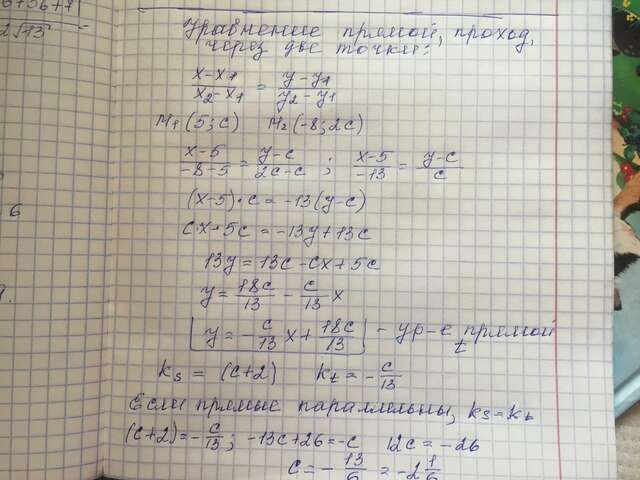 +3в+1
2√13
6
Уравнение прямой, проход,
через две точки:
x-x1/x2-x1 = y-y1/y2-y1
M1(5;c) M2(-8;2c)
x-5/-8-5 = y-c/2c-c ; x-5/-13 = y-c/c
(x-5)·c = -13(y-c)
cx-5c = -13y+13c
13y = 13c-cx+5c
y = 18c/13 - c/13 x
y = -c/13 x + 18c/13 - ур-е прямой t
ks = (c+2) kt = -c/13
Если прямые параллельны, ks=kt
(c+2) = -c/13 ; -13c+26 = -c 12c = -26
c = -13/6 = -2 1/6